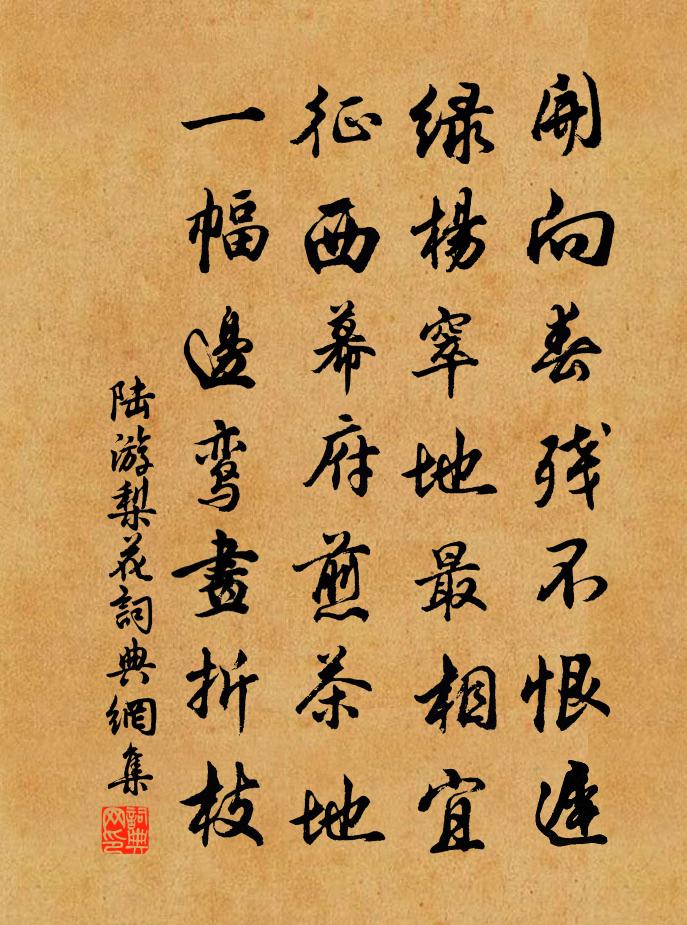 開向春残不恨遲
绿楊窣地最相宜
征西幕府煎茶地
一幅邊鸾畫折枝
陆游梨花詞典網集
詞典網印